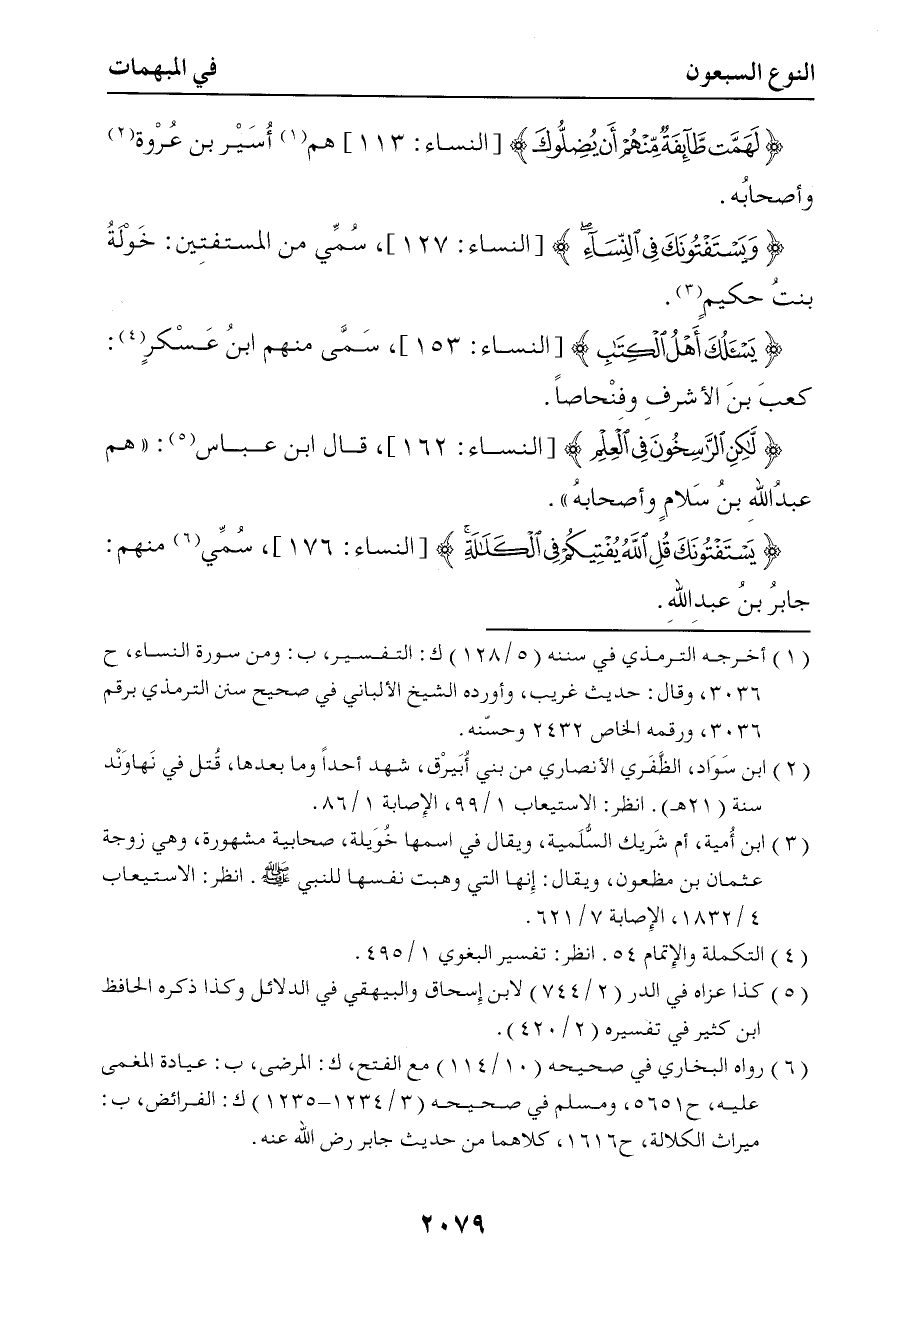 النوع السبعون في المبهمات
﴿ لَهَمَّت طَّآئِفَةٌ مِّنْهُمْ أَن يُضِلُّوكَ ﴾ [النساء: ١١٣] هم(١) أُسَيْر بن عُرْوة(٢)
وأصحابُه.
﴿ وَيَسْتَفْتُونَكَ فِى ٱلنِّسَآءِ ۖ ﴾ [النساء: ١٢٧]، سُمِّي من المستفتين: خَوْلَةُ
بنتُ حكيمٍ(٣).
﴿ يَسْـَٔلُكَ أَهْلُ ٱلْكِتَٰبِ ﴾ [النساء: ١٥٣]، سَمَّى منهم ابنُ عَسْكرٍ(٤):
كعبَ بنَ الأشرفِ وفِنْحاصاً.
﴿ لَّٰكِنِ ٱلرَّٰسِخُونَ فِى ٱلْعِلْمِ ﴾ [النساء: ١٦٢]، قال ابن عباس(٥): «هم
عبدُالله بنُ سَلامٍ وأصحابهُ».
﴿ يَسْتَفْتُونَكَ قُلِ ٱللَّهُ يُفْتِيكُمْ فِى ٱلْكَلَٰلَةِ ۚ ﴾ [النساء: ١٧٦]، سُمِّي(٦) منهم:
جابرُ بنُ عبدِاللهِ.
(١) أخرجه الترمذي في سننه (٥/ ١٢٨) ك: التفسير، ب: ومن سورة النساء، ح
٣٠٣٦، وقال: حديث غريب، وأورده الشيخ الألباني في صحيح سنن الترمذي برقم
٣٠٣٦، ورقمه الخاص ٢٤٣٢ وحسّنه.
(٢) ابن سَوَاد، الظَّفَري الأنصاري من بني أُبَيرْق، شهد أحداً وما بعدها، قُتل في نَهاوَنْد
سنة (٢١هـ). انظر: الاستيعاب ١/ ٩٩، الإصابة ١/ ٨٦.
(٣) ابن أُمية، أم شَريك السُّلَمية، ويقال في اسمها خُوَيلة، صحابية مشهورة، وهي زوجة
عثمان بن مظعون، ويقال: إنها التي وهبت نفسها للنبي ﷺ. انظر: الاستيعاب
٤/ ١٨٣٢، الإصابة ٧/ ٦٢١.
(٤) التكملة والإتمام ٥٤. انظر: تفسير البغوي ١/ ٤٩٥.
(٥) كذا عزاه في الدر (٢/ ٧٤٤) لابن إسحاق والبيهقي في الدلائل وكذا ذكره الحافظ
ابن كثير في تفسيره (٢/ ٤٢٠).
(٦) رواه البخاري في صحيحه (١٠/ ١١٤) مع الفتح، ك: المرضى، ب: عيادة المغمى
عليه، ح٥٦٥١، ومسلم في صحيحه (٣/ ١٢٣٤-١٢٣٥) ك: الفرائض، ب:
ميراث الكلالة، ح١٦١٦، كلاهما من حديث جابر رض الله عنه.
٢٠٧٩